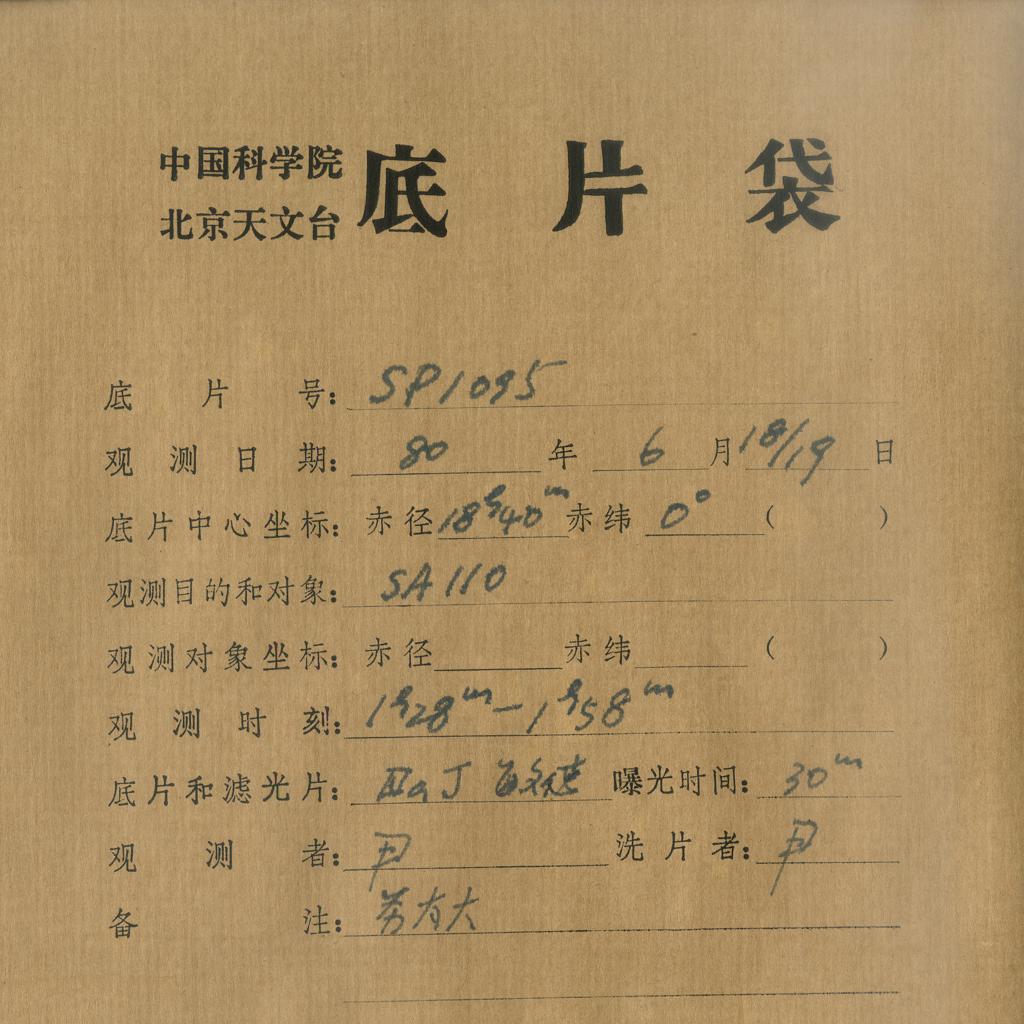 中国科学院
北京天文台
底片袋
底片号: SP1095
观测日期: 80 年 6 月 18/19 日
底片中心坐标: 赤径 18h40m 赤纬 0° ( )
观测目的和对象: SA110
观测对象坐标: 赤径 赤纬 ( )
观测时刻: 1h28m-1h58m
底片和滤光片: IIaJ 曝光时间: 30m
观测者: 尹 洗片者: 尹
备注: